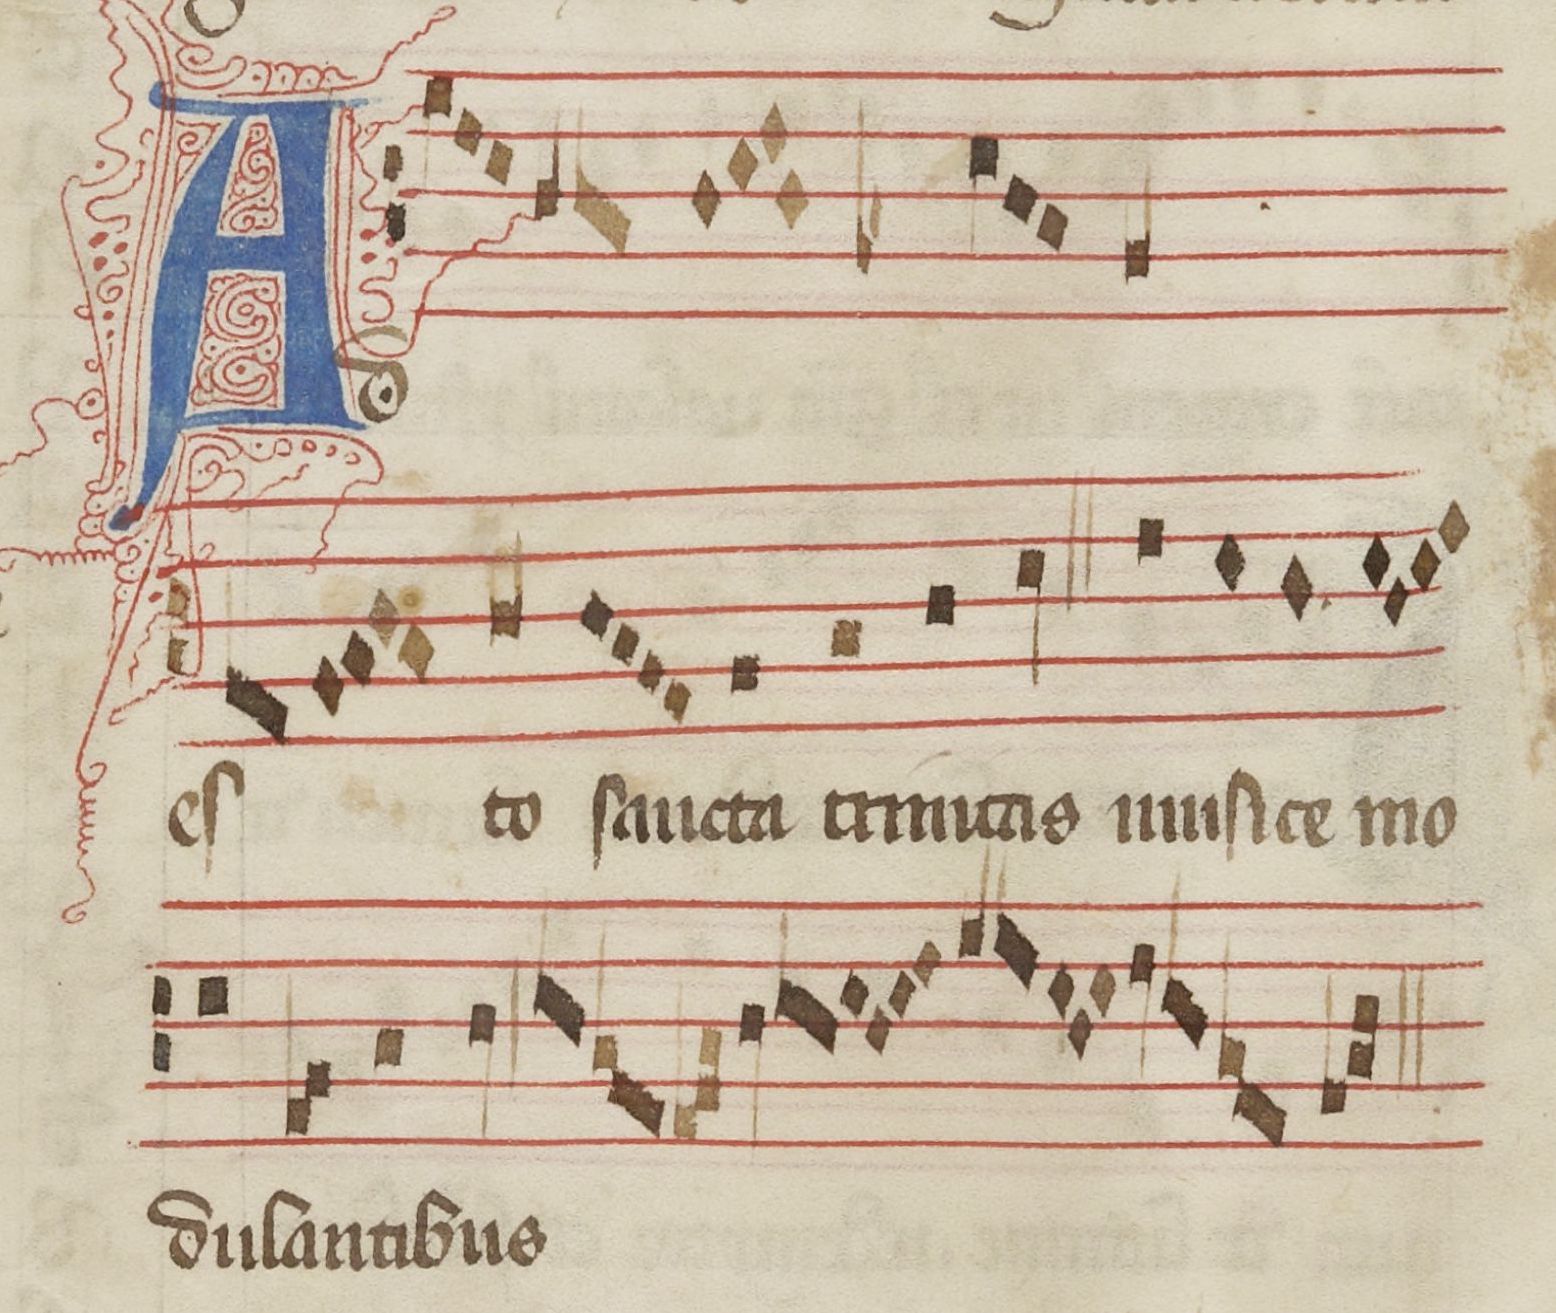 Ad
esto sancta trinitas musice mo
dulantibus